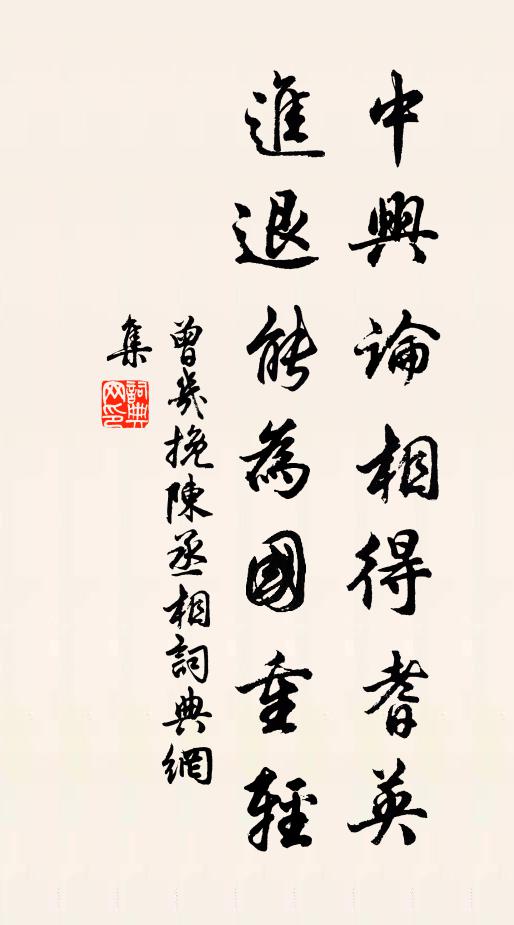 中興論相得耆英
進退能為國重輕
曾幾挽陳丞相詞典網
集
詞典網印